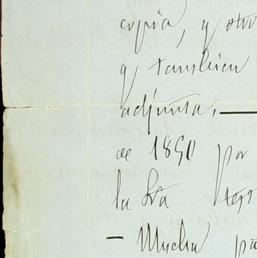 copia, y otro
y tambien
adjunta.—
de 1890 por
la Sra
— Mucha